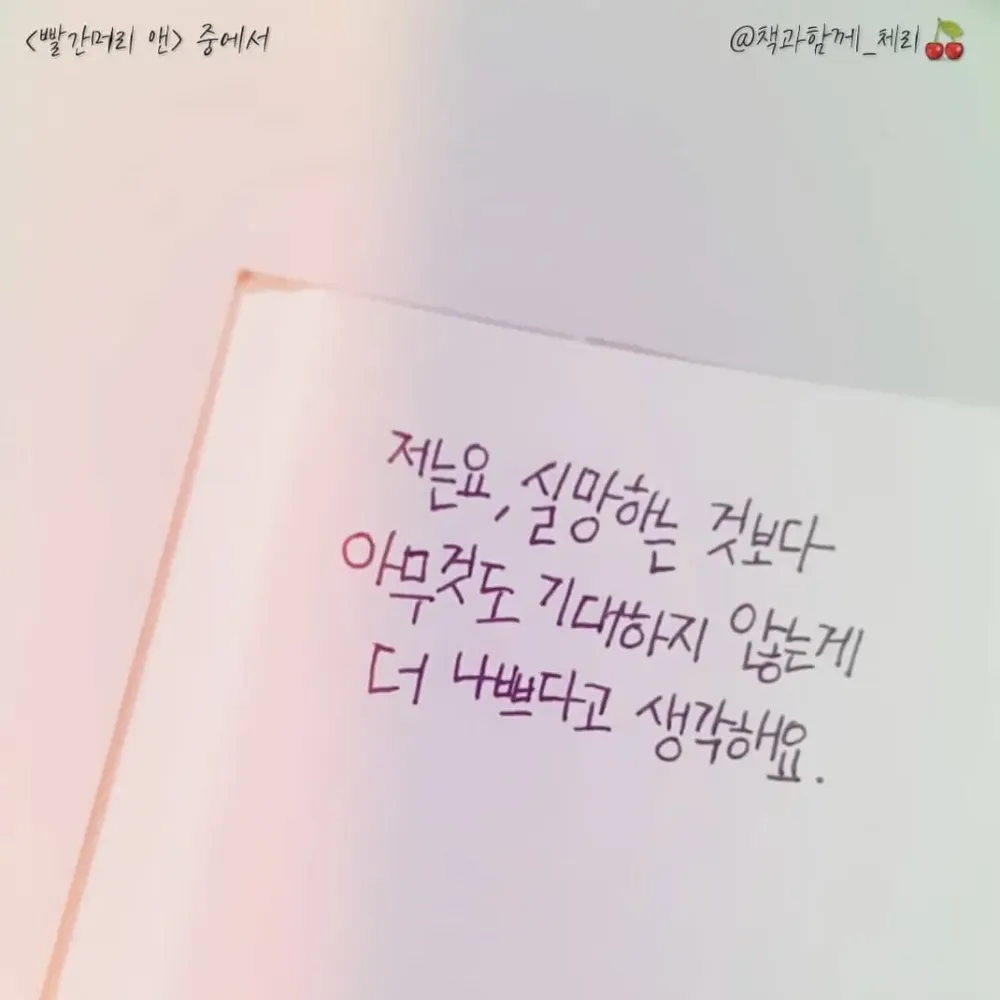 <빨간머리 앤> 중에서
@책과함께_체리🍒
저는요, 실망하는 것보다
아무것도 기대하지 않는게
더 나쁘다고 생각해요.